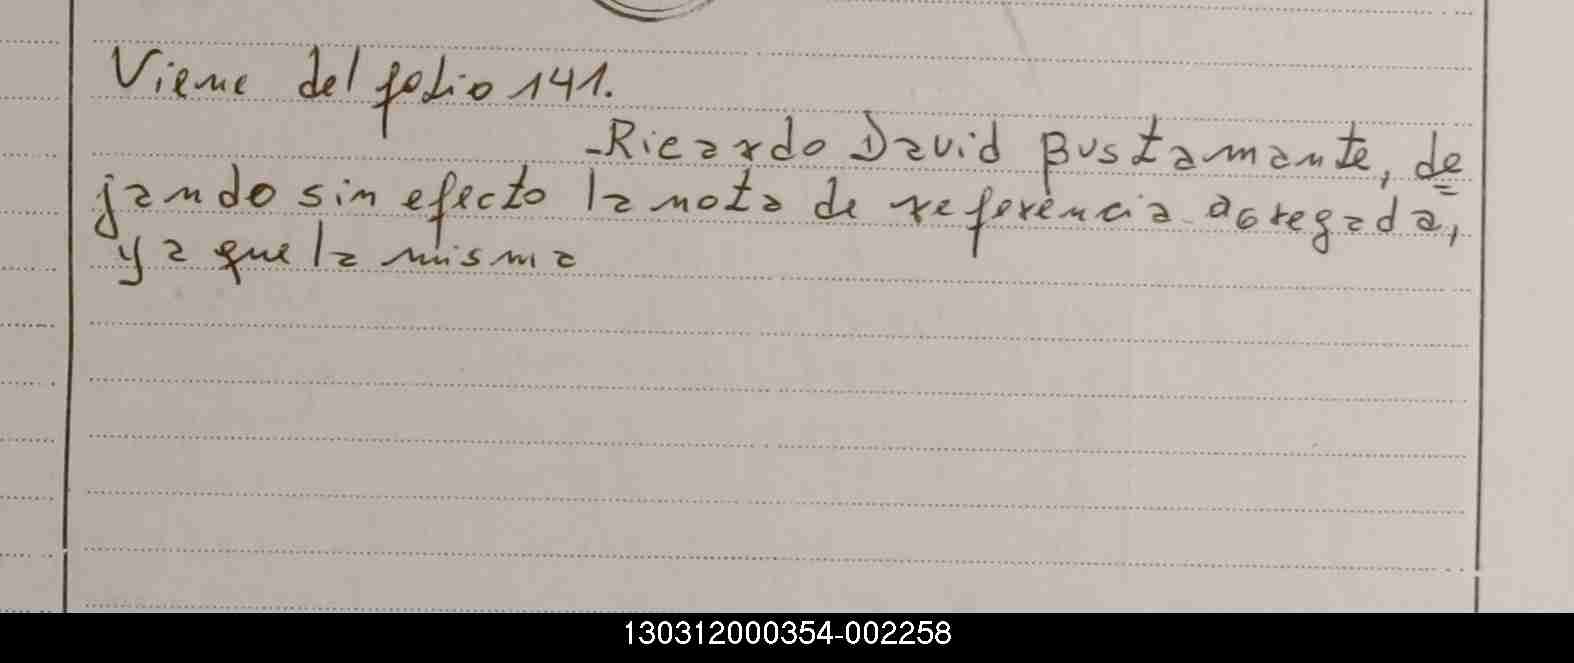 Viene del folio 141.
-Ricardo David Bustamante, de=
jando sin efecto la nota de referencia agregada,
ya que la misma
130312000354-002258